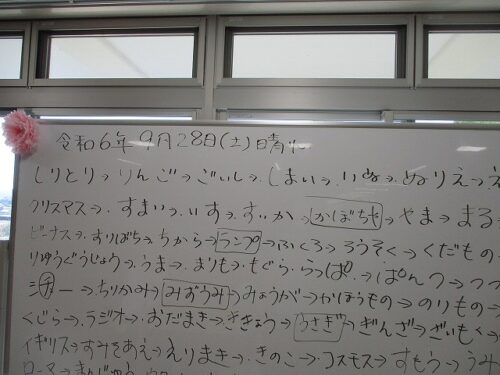 令和6年 9月28日(土)晴れ
しりとり→りんご→ごいし→しまい→いぬ→ぬりえ→え
クリスマス→すまい→いす→すいか→かぼちゃ→やま→まる
ビーナス→すりばち→ちから→ランプ→ふくろ→ろうそく→くだもの
りゅうぐうじょう→うま→まりも→もぐら→らっぱ→ぱんつ→つ
チー→ちりがみ→みずうみ→みょうが→かほうもの→のりもの
くじら→ラジオ→おだまき→ききょう→うさぎ→ぎんざ→ざいもく
イギリス→すみそあえ→えりまき→きのこ→コスモス→すもう→うみ